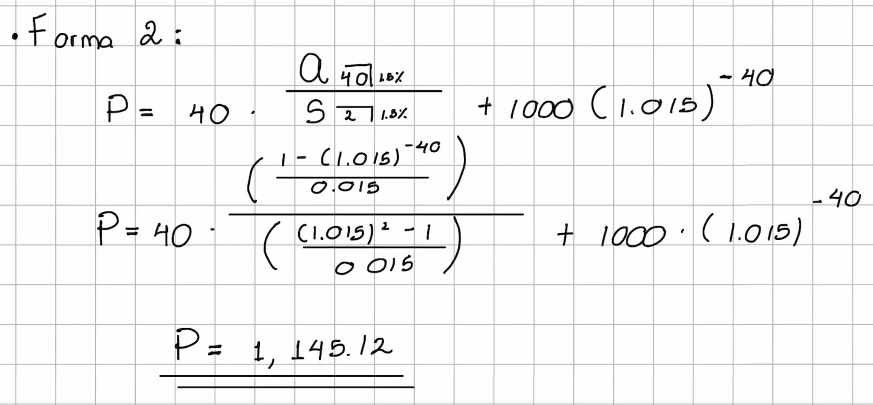 • Forma 2:
P = 40 · a 40̅| 1.5% / s 2̅| 1.5% + 1000 (1.015)^-40
P = 40 · ((1 - (1.015)^-40) / 0.015) / (((1.015)^2 - 1) / 0 015) + 1000 · (1.015)^-40
P = 1, 145.12